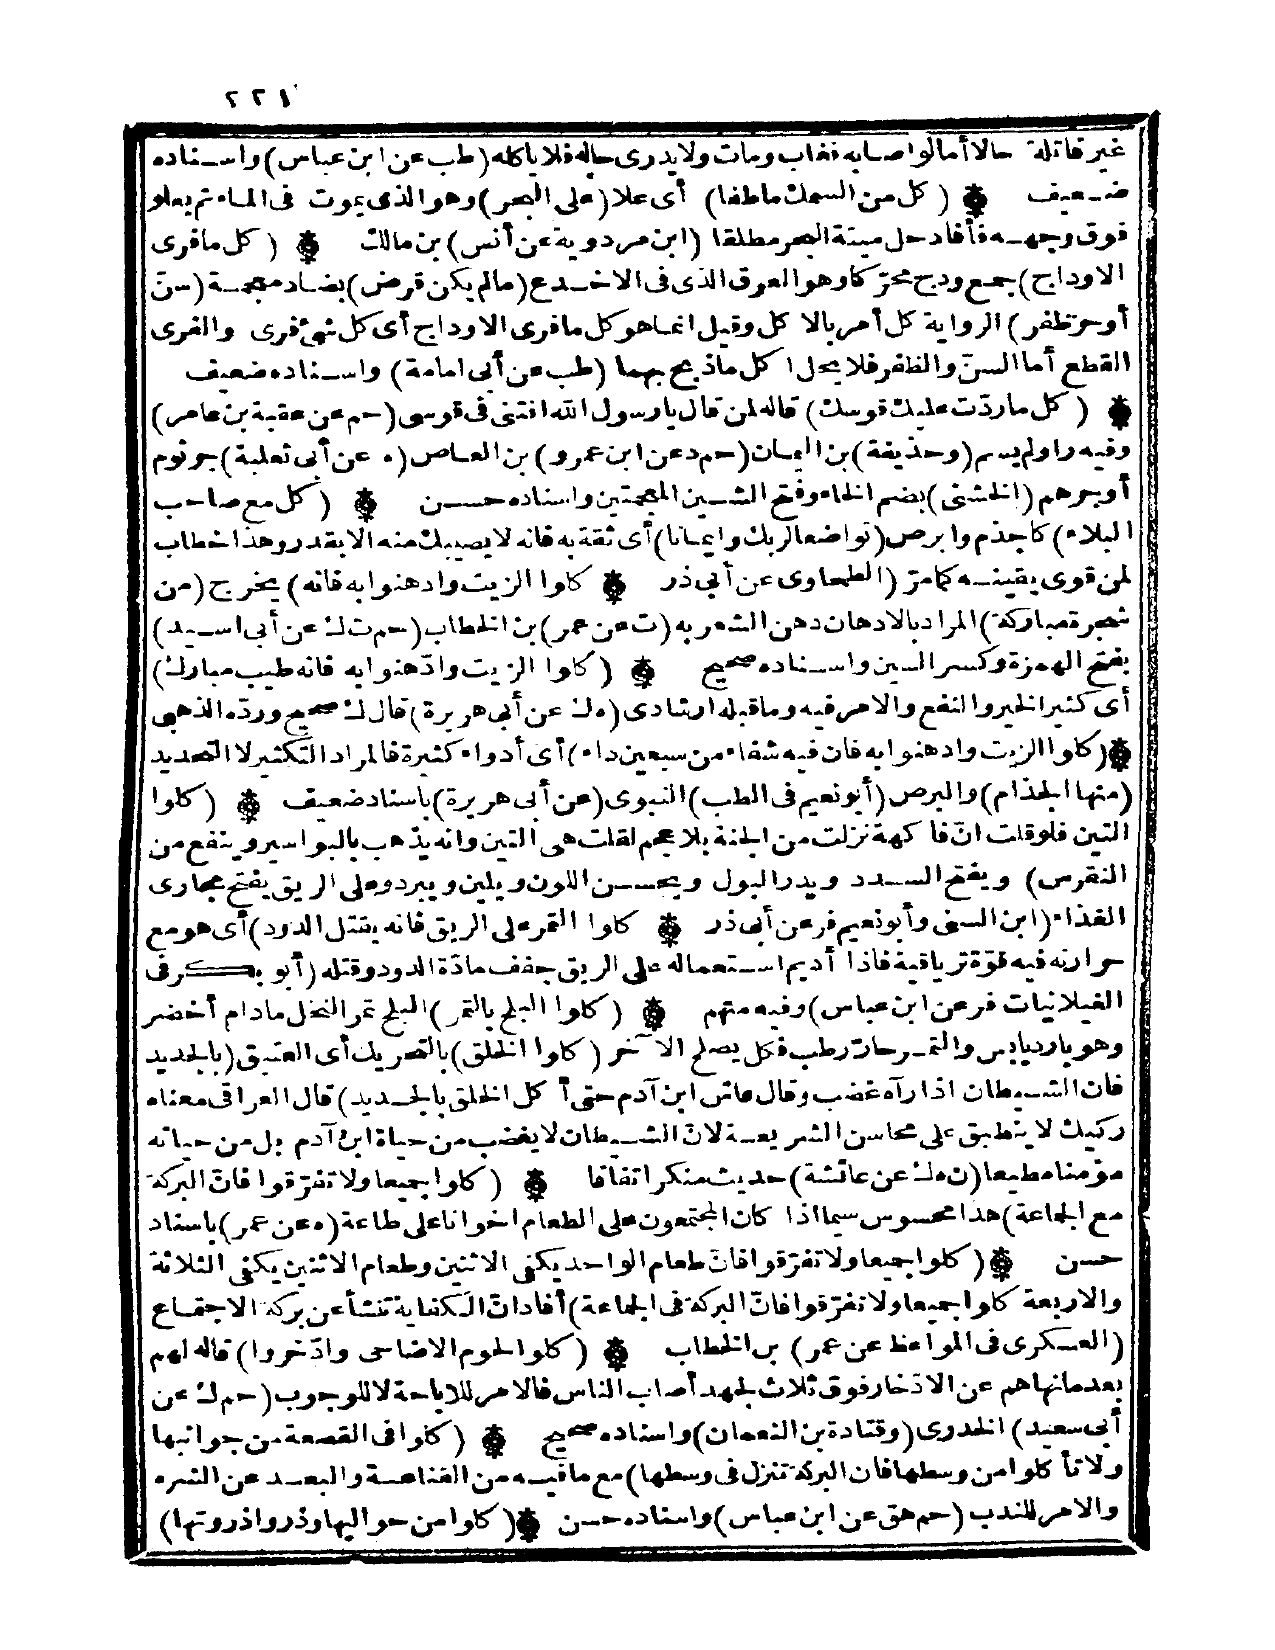 ٢٢١
غير قاتلة حالا أما لو اصابه فغاب ومات ولا يدرى حاله فلا يأكله (طب عن ابن عباس) واسناده
ضعيف ۞ (كل من السمك ما طفا) أى علا (على البحر) وهو الذى يموت فى الماء ثم يعلو
فوق وجهه فأفاد حل ميتة البحر مطلقا (ابن مردوية عن أنس) بن مالك ۞ (كل ما فرى
الاوداج) جمع ودج محرّ كا وهو العرق الذى فى الاخدع (ما لم يكن قرض) بضاد معجمة (سنّ
أو حز ظفر) الرواية كل أمر بالا كل وقيل انما هو كل ما فرى الاوداج أى كل شئ فرى والفرى
القطع أما السنّ والظفر فلا يحل اكل ما ذبح بهما (طب عن أبى امامة) واسناده ضعيف
۞ (كل ما ردّت عليك قوسك) قاله لمن قال يا رسول الله افتنى فى قوسى (حم عن عقبة بن عامر)
وفيه راو لم يسم (وحذيفة) بن اليمان (حم د عن ابن عمرو) بن العاص (ه عن أبى ثعلبة) جرثوم
أو جرهم (الخشنى) بضم الخاء وفتح الشين المعجمتين واسناده حسن ۞ (كل مع صاحب
البلاء) كاجذم وابرص (تواضعا لربك وايمانا) أى ثقة به فانه لا يصيبك منه الا بقدر وهذا خطاب
لمن قوى يقينه كما مرّ (الطحاوى عن أبى ذر ۞ كلوا الزيت وادهنوا به فانه) يخرج (من
شجرة مباركة) المراد بالادهان دهن الشعر به (ت عن عمر) بن الخطاب (حم ت ك عن أبى اسيد)
بفتح الهمزة وكسر السين واسناده صحيح ۞ (كلوا الزيت وادّهنوا به فانه طيب مبارك)
أى كثير الخير والنفع والامر فيه وما قبله ارشادى (ه ك عن أبى هريرة) قال ك صحيح وردّه الذهبى
۞ (كلوا الزيت وادهنوا به فان فيه شفاء من سبعين داء) أى أدواء كثيرة فالمراد التكثير لا التحديد
(منها الجذام) والبرص (أبو نعيم فى الطب) النبوى (عن أبى هريرة) باسناد ضعيف ۞ (كلوا
التين فلو قلت انّ فا كهة نزلت من الجنة بلا عجم لقلت هى التين وانه يذهب بالبواسير وينفع من
النقرس) ويفتح السدد ويدر البول ويحسن اللون ويلين ويبرد وعلى الريق يفتح مجارى
الغذاء (ابن السنى وأبو نعيم فر عن أبى ذر ۞ كلوا التمر على الريق فانه يقتل الدود) أى هو مع
حرارته فيه قوّة ترياقية فاذا أديم استعماله على الريق جفف مادّة الدود وقتله (أبو بكر فى
الغيلانيات فر عن ابن عباس) وفيه متهم ۞ (كلوا البلح بالتمر) البلح تمر النخل ما دام أخضر
وهو بارد يابس والتمر حارّ رطب فكل يصلح الآخر (كلوا الخلق) بالتحريك أى العتيق (بالجديد
فان الشيطان اذا رآه غضب وقال عاش ابن آدم حتى أ كل الخلق بالجديد) قال العراقى معناه
ركيك لا ينطبق على محاسن الشريعة لانّ الشيطان لا يغضب من حياة ابن آدم بل من حياته
مؤمنا مطيعا (ن ه ك عن عائشة) حديث منكر اتفاقا ۞ (كلوا جميعا ولا تفرّقوا فانّ البركة
مع الجماعة) هذا محسوس سيما اذا كان المجتمعون على الطعام اخوانا على طاعة (ه عن عمر) باسناد
حسن ۞ (كلوا جميعا ولا تفرّقوا فانّ طعام الواحد يكفى الاثنين وطعام الاثنين يكفى الثلاثة
والاربعة كلوا جميعا ولا تفرّقوا فانّ البركة فى الجماعة) أفاد انّ الكفاية تنشأ عن بركة الاجتماع
(العسكرى فى المواعظ عن عمر) بن الخطاب ۞ (كلوا لحوم الاضاحى وادّخروا) قاله لهم
بعد ما نهاهم عن الادّخار فوق ثلاث لجهد أصاب الناس فالامر للاباحة لا للوجوب (حم ك عن
أبى سعيد) الخدرى (وقتادة بن النعمان) واسناده صحيح ۞ (كلوا فى القصعة من جوانبها
ولا تأ كلوا من وسطها فان البركة تنزل فى وسطها) مع ما فيه من القناعة والبعد عن الشره
والامر للندب (حم هق عن ابن عباس) واسناده حسن ۞ (كلوا من حواليها وذروا ذروتها)